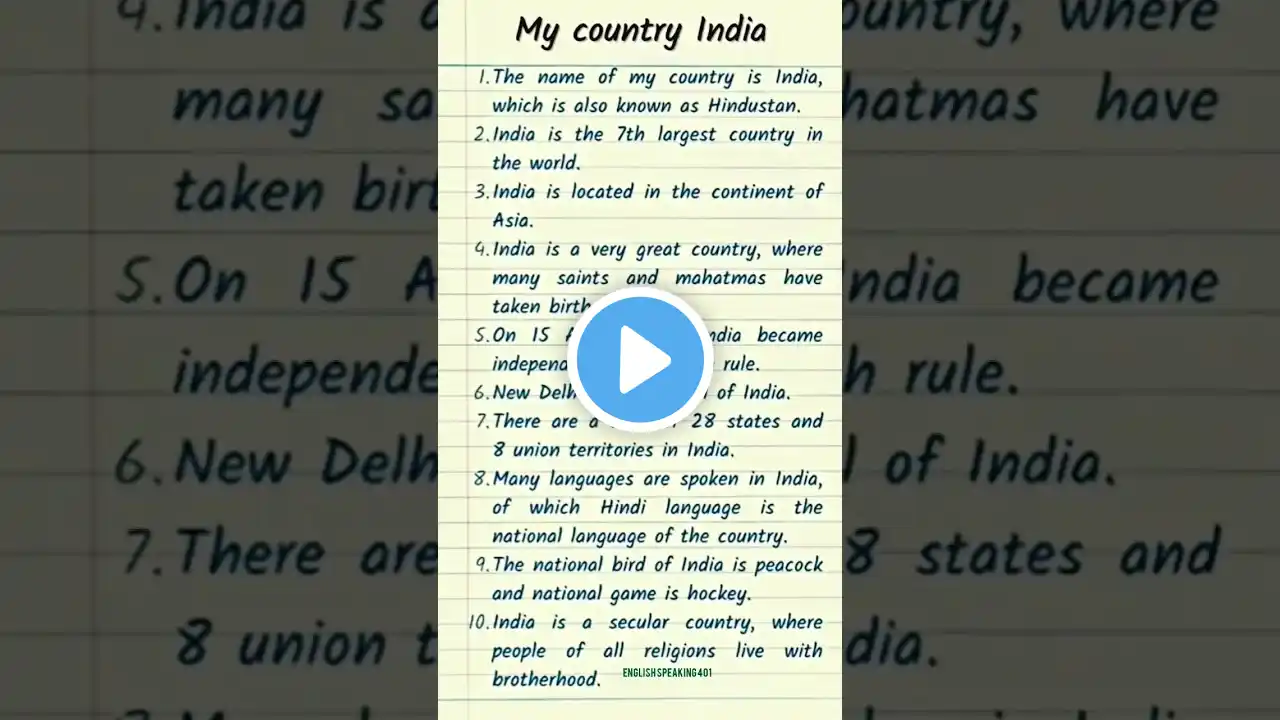 My country India
1. The name of my country is India,
which is also known as Hindustan.
2. India is the 7th largest country in
the world.
3. India is located in the continent of
Asia.
4. India is a very great country, where
many saints and mahatmas have
taken birth
5. On 15 India became
independ rule.
6. New Delh of India.
7. There are a 28 states and
8 union territories in India.
8. Many languages are spoken in India,
of which Hindi language is the
national language of the country.
9. The national bird of India is peacock
and national game is hockey.
10. India is a secular country, where
people of all religions live with
brotherhood.
ENGLISH SPEAKING 401
4. India is a
many sa
taken birt
5. On 15 A
independe
6. New Delh
7. There are
8 union t
ountry, where
hatmas have
India became
h rule.
l of India.
8 states and
dia.